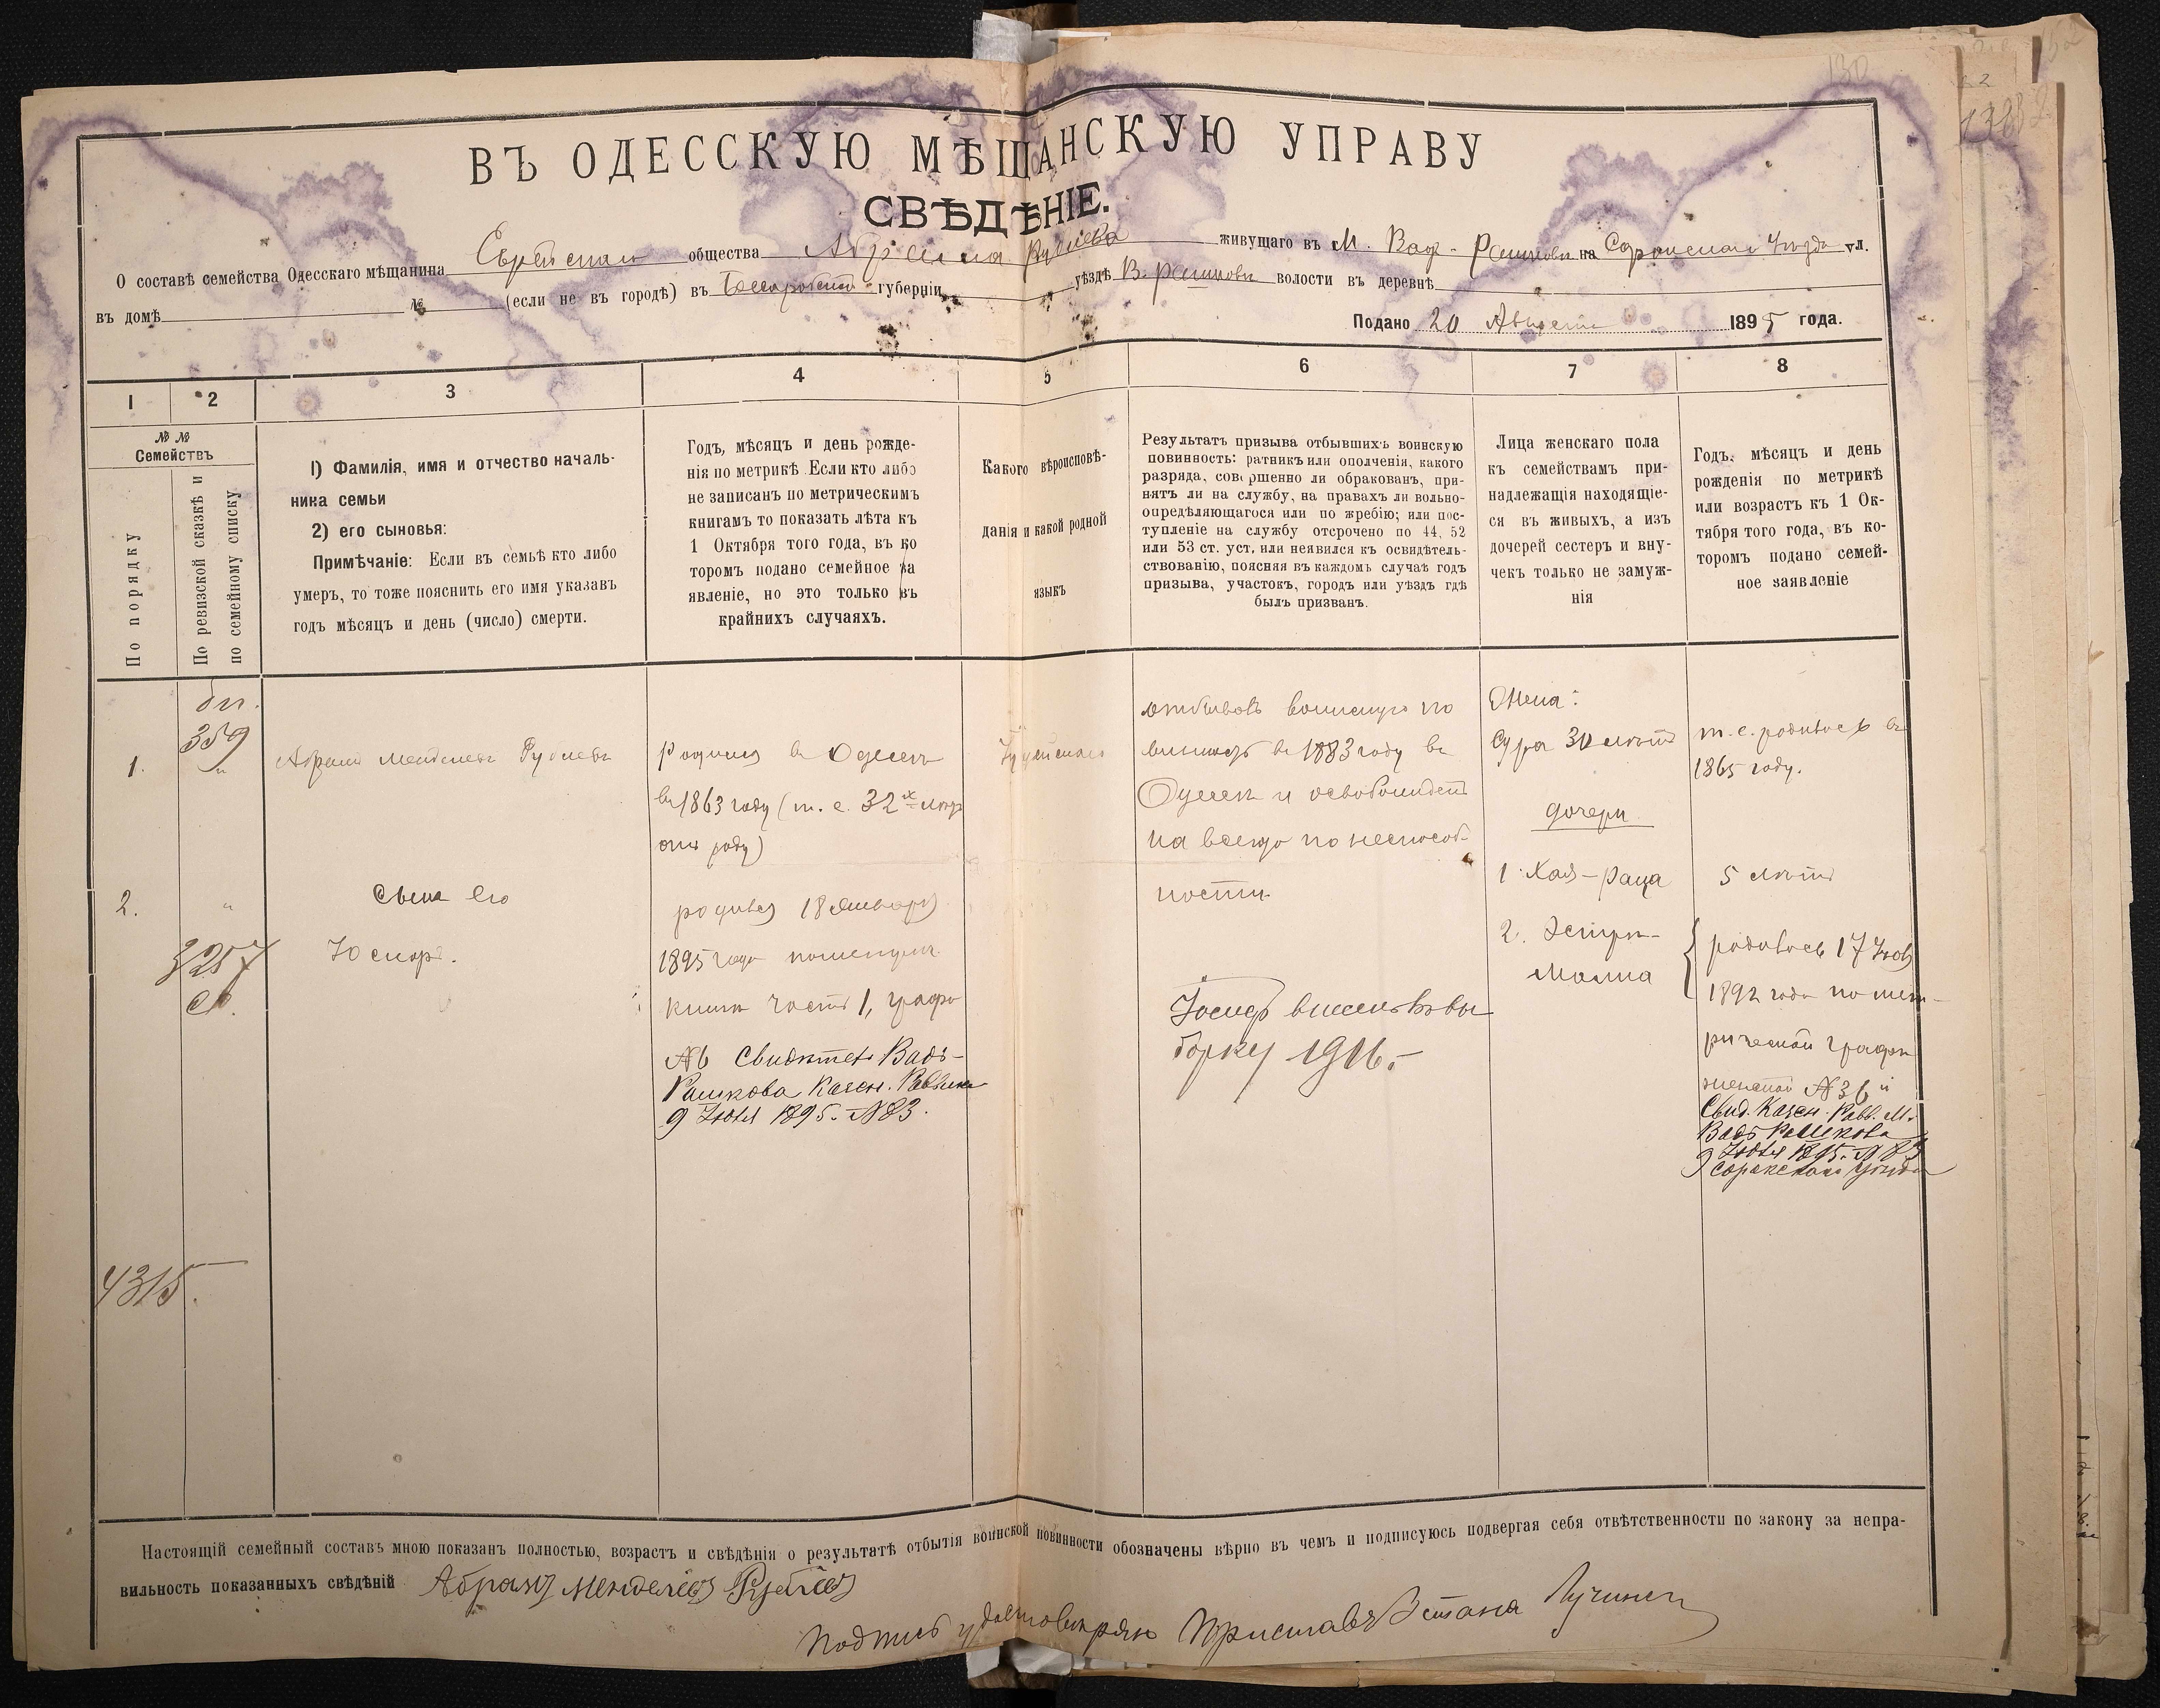 130
ВЪ ОДЕССКУЮ МѢЩАНСКУЮ УПРАВУ
СВѢДѢНІЕ.
О составѣ семейства Одесскаго мѣщанина Еврейскаго общества Абрама Рублева живущаго въ М. Вад-Рашковѣ на Сорокскаго Уѣзда ул.
въ домѣ № (если не въ городѣ) въ Бессарабской губерніи уѣздѣ В. Рашковѣ волости въ деревнѣ
Подано 20 Августа 1895 года.
1 2 3 4 5 6 7 8
№ № Семействъ
По порядку
По ревизской сказкѣ и
по семейному списку
1) Фамилія, имя и отчество началь-
ника семьи
2) его сыновья:
Примѣчаніе: Если въ семьѣ кто либо
умеръ, то тоже пояснить его имя указавъ
годъ мѣсяцъ и день (число) смерти.
Годъ, мѣсяцъ и день рожде-
нія по метрикѣ Если кто либо
не записанъ по метрическимъ
книгамъ то показать лѣта къ
1 Октября того года, въ ко
торомъ подано семейное за
явленіе, но это только въ
крайнихъ случаяхъ.
Какого вѣроисповѣ-
данія и какой родной
языкъ
Результатъ призыва отбывшихъ воинскую
повинность: ратникъ или ополченія, какого
разряда, совершенно ли обракованъ, при-
нятъ ли на службу, на правахъ ли вольно-
опредѣляющагося или по жребію; или пос-
тупленіе на службу отсрочено по 44, 52
или 53 ст. уст. или неявился къ освидѣтель-
ствованію, поясняя въ каждомъ случаѣ годъ
призыва, участокъ, городъ или уѣздъ гдѣ
былъ призванъ.
Лица женскаго пола
къ семействамъ при-
надлежащія находящіе-
ся въ живыхъ, а изъ
дочерей сестеръ и вну-
чекъ только не замуж-
нія
Годъ, мѣсяцъ и день
рожденія по метрикѣ
или возрастъ къ 1 Ок-
тября того года, въ ко-
торомъ подано семей-
ное заявленіе
1.
359
Абрамъ Менделевъ Рублевъ
Родился въ Одессѣ
въ 1863 году (т. е. 32х лѣтъ
отъ роду)
Іудейскаго
отбывалъ воинскую по
винность въ 1883 году въ
Одессѣ и освобожденъ
на всегда по неспособ-
ности.
Жена:
Сура 30 лѣтъ
т. е. родилась въ
1865 году.
дочери
1. Хая-Раца
5 лѣтъ
2. Эстра-
Малка
родилась 17 Іюля
1892 года по мет-
рической графѣ
женской №36 и
Свид. Казен. Равв. М.
Вадъ Рашкова
9 Іюля 1895. №83
Сорокскаго Уѣзда
2. "
Сынъ его
Іосифъ.
3257
родился 18 Января
1895 года
книги часть 1, графа
№6 Свидѣтел. Вадъ-
Рашкова Казен. Раввина
9 Іюля 1895. №83.
Іосифъ внесенъ въ вы
борку 1916.
4315.
Настоящій семейный составъ мною показанъ полностью, возрастъ и свѣдѣнія о результатѣ отбытія воинской повинности обозначены вѣрно въ чемъ и подписуюсь подвергая себя отвѣтственности по закону за непра-
вильность показанныхъ свѣдѣній Абрамъ Менделевъ Рублевъ
Подпись удостовѣряю Приставъ 3 стана